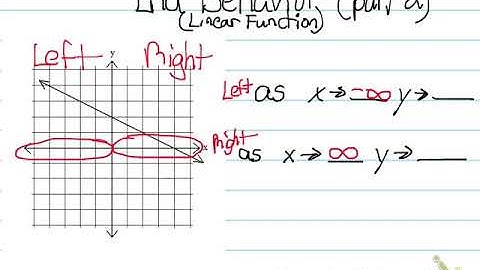 End Behavior (part 2)
(Linear Function)
Left Right
y
Left as x→ -∞ y→ ___
x
Right as x→ ∞ y→ ___